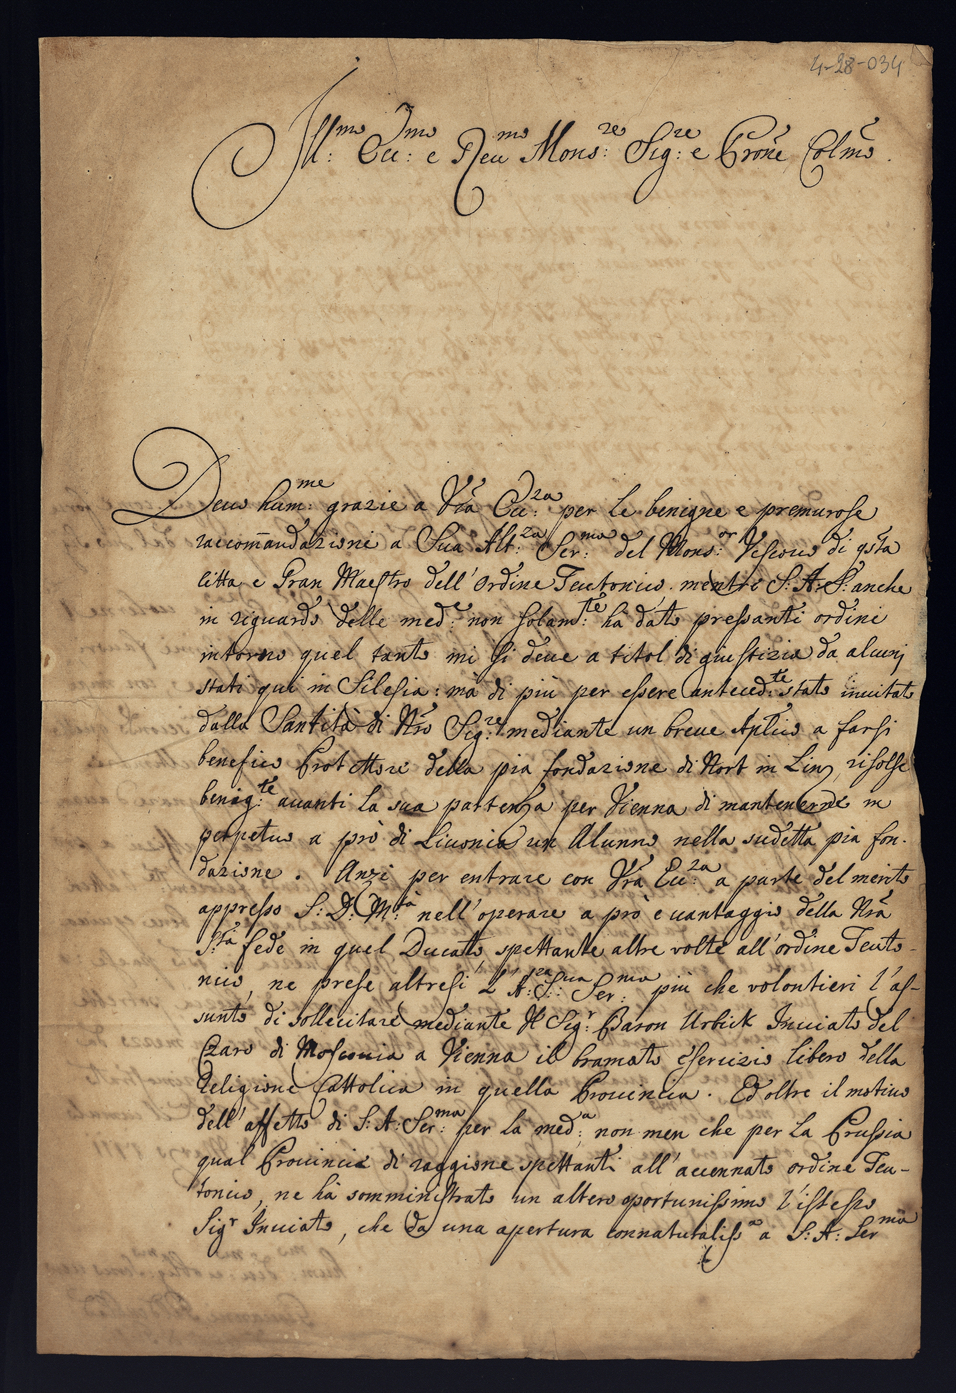 4-28-034
Ill:mo Ecc:mo e Reu:mo Mons:re Sig:re e Prone Colmo.
Deuo hum:me grazie a Vra Ecc:za per le benigne e premurose
raccomandazioni a Sua Alt:za Ser:ma del Mons:or Vescouo di qsta
citta e Gran Maestro dell'Ordine Teutonico. mentre S: A: S: anche
in riguardo delle med:e non solam:te hà dato pressanti ordini
intorno quel tanto mi si deue a titol di giustizia da alcunj
stati qui in Silesia: mà di più per essere anteced:te stato inuitato
dalla Santità di Nro Sig:re mediante un breue Aplico a farsi
benefico Protettore della pia fondazione di Nort in Linz, risolse
benig:te auanti la sua partenza per Vienna di mantenerde in
perpetuo a prò di Liuonia un Alunno nella sudetta pia fon-
dazione. Anzi per entrare con Vra Ecc:za a parte del merito
appresso S: D: M:tà nell'operare a prò e uantaggio della Nra
S:ta fede in quel Ducato, spettante altre volte all'ordine Teuto-
nico, ne prese altresi l'A:za Sua Ser:ma più che volontieri l'as-
sunto di sollecitare mediante Il Sig:r Baron Urbick Inuiato del
Czaro di Mosconia a Vienna il bramato esercizio libero della
Religione Cattolica in quella Prouincia. Ed oltre il motiuo
dell'affetto di S: A: Ser:ma per la med:a, non men che per la Prussia
qual Prouincie di raggione spettanti all'accennato ordine Teu-
tonico, ne hà somministrato un altero oportunissimo l'istesso
Sigr Inuiato, che da una apertura connaturaliss:a a S: A: Serma